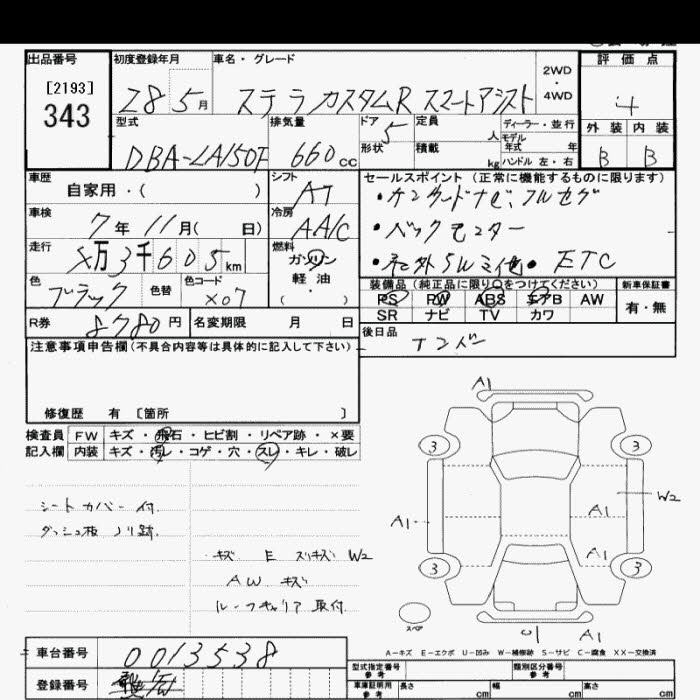 出品番号
[2193]
343
初度登録年月
28 5月
車名・グレード
ステラ カスタムR スマートアシスト
2WD
・
4WD
評価点
4
外装 内装
B B
型式
DBA-LA150F
排気量
660cc
ドア 5
形状
定員 人
積載 kg
ディーラー・並行
モデル
年式 年
ハンドル 左・右
車歴
自家用・( )
シフト
AT
車検
7年11月( 日)
冷房
AA/C
走行
万3千605km
燃料
ガソリン
軽油
・
( )
色
ブラック
色替
色コード
X07
R券
8780円
名変期限 月 日
セールスポイント(正常に機能するものに限ります)
・ケンウッドナビ、フルセグ
・バックモニター
・社外SW
・ETC
装備品(純正品に限り○をつけてください)
PS PW ABS エアB AW
SR ナビ TV カワ
新車保証書
有・無
後日品
ナンバー
注意事項申告欄(不具合内容等は具体的に記入して下さい)
修復歴 有 〔箇所 〕
検査員
記入欄
FW キズ・飛石・ヒビ割・リペア跡・×要
内装 キズ・汚レ・コゲ・穴・スレ・キレ・破レ
シートカバー付
ダッシュ板 ノリ跡
キズ E スリキズ W2
AW キズ
ルーフキャリア取付
A1
3 3
W2
A1 A1
A1
3 3
スペア
U1 A1
A-キズ E-エクボ U-凹み W-補修跡 S-サビ C-腐食 XX-交換済
車台番号
0013538
登録番号
型式指定番号
参考
類別区分番号
参考
車庫証明用
参考
長さ cm
幅 cm
高さ cm